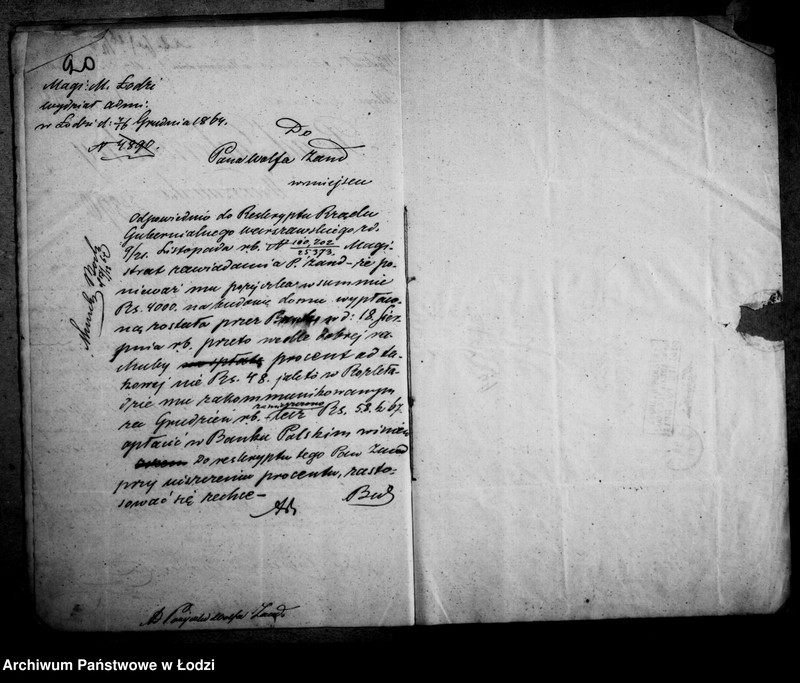 90
Magi: M. Łodzi
wydział admi:
w Łodzi d: 7/6 Grudnia 1864.
N 4890.
Do
Pana Wolfa Zand
w miejscu
Odpowiednio do Reskryptu Rządu
Gubernialnego warszawskiego zd.
9/21. Listopada r.b. N 100.202/25.373. Magi-
strat zawiadamia P. Zand – że po-
nieważ mu pożyczka w summie
Rs. 4000. na budowę domu wypłaco-
ną została przez Bank w d: 18 Sier-
pnia r.b. przeto wedle dobrej ra-
chuby procent od ta-
kowej nie Rs. 48. jak to w Rozkła-
dzie mu zakommunikowanym
za Grudzień r.b. zamieszczono lecz Rs. 58. k 67.
opłacić w Banku Polskim winien
Do reskryptu tego Pan Zand
przy uiszczeniu procentu, zasto-
sować się zechce –
Bud
Ad Pożyczki Wolfa Zand
Archiwum Państwowe w Łodzi